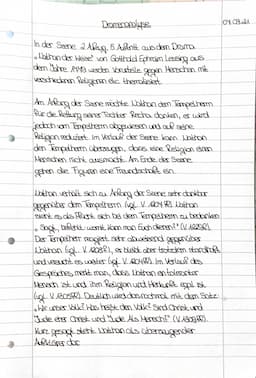 Dramenanalyse
07.03.21
In der Szene 2. Aufzug, 5. Auftritt aus dem Drama
„Nathan der Weise" von Gotthold Ephraim Lessing aus
dem Jahre 1779 werden Vorurteile gegen Menschen mit
verschiedenen Religionen etc. thematisiert.
Am Anfang der Szene möchte Nathan dem Tempelherrn
für die Rettung seiner Tochter Recha danken, er wird
jedoch vom Tempelherrn abgewiesen und auf seine
Religion reduziert. Im Verlauf der Szene kann Nathan
den Tempelherrn überzeugen, dass eine Religion einen
Menschen nicht ausmacht. Am Ende der Szene
gehen die Figuren eine Freundschaft ein.
Nathan verhält sich zu Anfang der Szene sehr dankbar
gegenüber dem Tempelherrn (vgl. V.
). Nathan
sieht es als Pflicht sich bei dem Tempelherrn zu bedanken
„Sagt, befiehlt: womit kann man Euch dienen?" (V.
).
Der Tempelherr reagiert sehr abweisend gegenüber
Nathan (vgl. V.
), er bleibt aber trotzdem standhaft
und versucht es weiter (vgl. V.
). Im Verlauf des
Gespräches merkt man, dass Nathan ein toleranter
Mensch ist und ihm Religion und Herkunft egal ist
(vgl. V.
). Deutlich wird das nochmal mit dem Satz:
„Wir unser Volk? Was heißt den Volk? Sind Christ und
Jude eher Christ und Jude Als Mensch?" (V.
).
Kurz gesagt stellt Nathan als überzeugender
Aufklärer dar